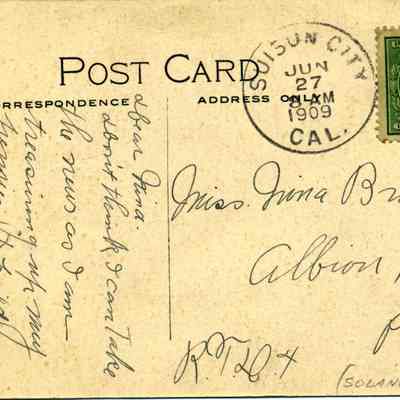 POST CARD
CORRESPONDENCE
ADDRESS ONLY
SUISUN CITY
JUN
27
8 AM
1909
CAL.
Dear Nina.
don't think I can take
the news as I am
treasuring up my
Miss. Nina Br
Albion
R.F.D. 4
(SOLAN